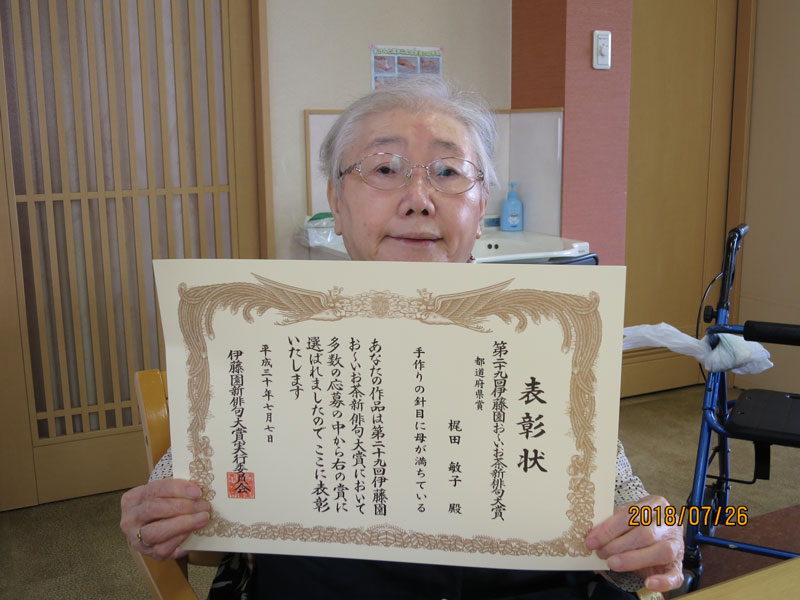 表彰状
第二十九回伊藤園お〜いお茶新俳句大賞
都道府県賞
梶田 敏子 殿
手作りの針目に母が満ちている
あなたの作品は第二十九回伊藤園
お〜いお茶新俳句大賞において
多数の応募の中から右の賞に
選ばれましたのでここに表彰
いたします
平成三十年七月七日
伊藤園新俳句大賞実行委員会
2018/07/26